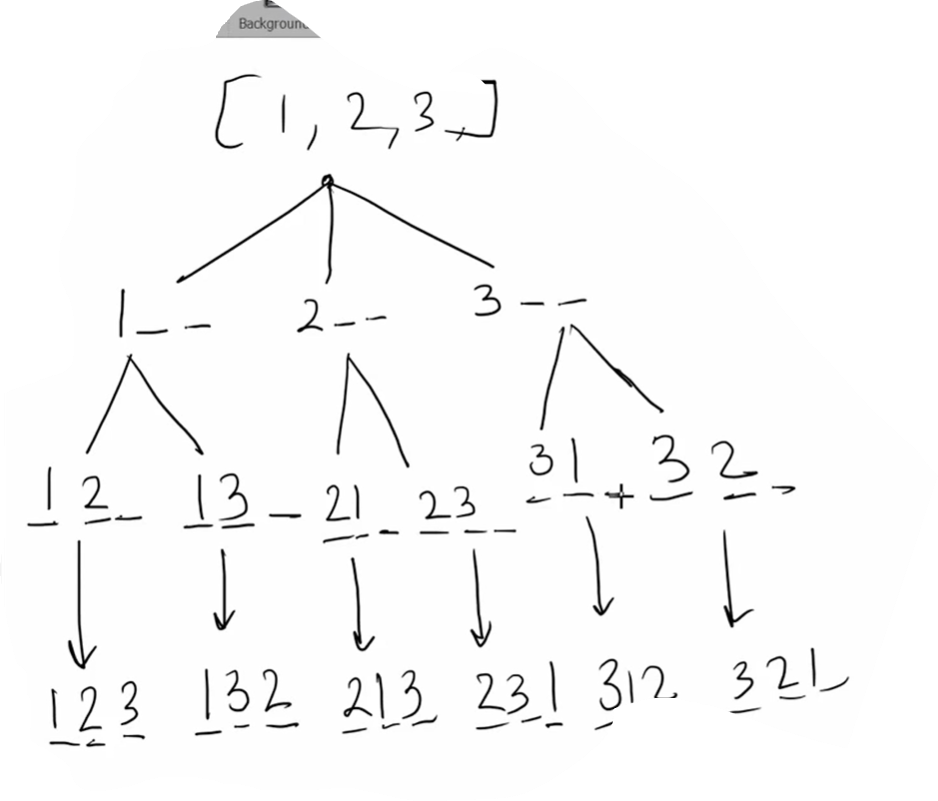 Background
[1, 2, 3,]
1 _ _ 2 _ _ 3 _ _
1 2 _ 1 3 _ 2 1 _ 2 3 _ 3 1 _ 3 2 _
1 2 3 1 3 2 2 1 3 2 3 1 3 1 2 3 2 1